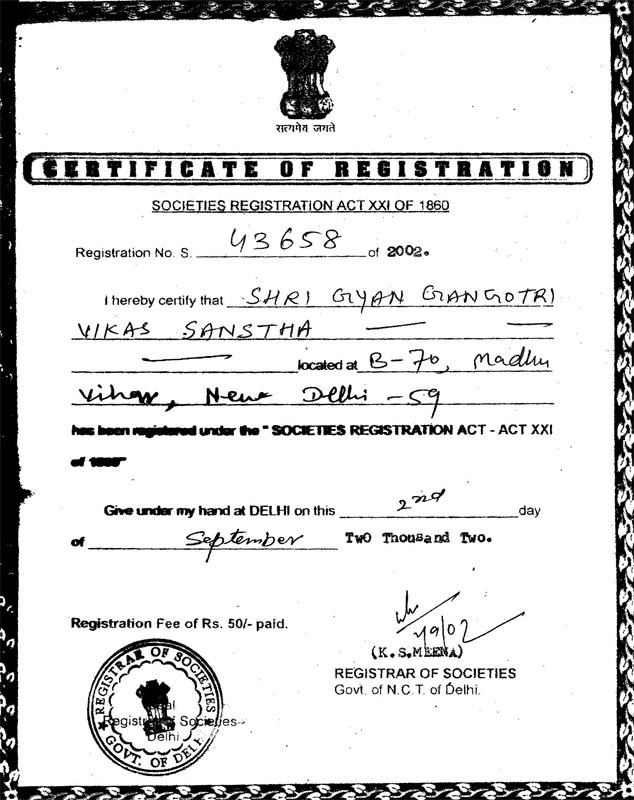 सत्यमेव जयते
CERTIFICATE OF REGISTRATION
SOCIETIES REGISTRATION ACT XXI OF 1860
Registration No. S. 43658 of 2002.
I hereby certify that SHRI GYAN GANGOTRI
VIKAS SANSTHA
located at B-70, Madhu
Vihar, New Delhi - 59
has been registered under the " SOCIETIES REGISTRATION ACT - ACT XXI
of 1860"
Give under my hand at DELHI on this 2nd day
of September Two Thousand Two.
Registration Fee of Rs. 50/- paid.
/9/02
(K.S.MEENA)
REGISTRAR OF SOCIETIES
Govt. of N.C.T. of Delhi.
REGISTRAR OF SOCIETIES
Registrar of Societies
Delhi
GOVT. OF DELHI